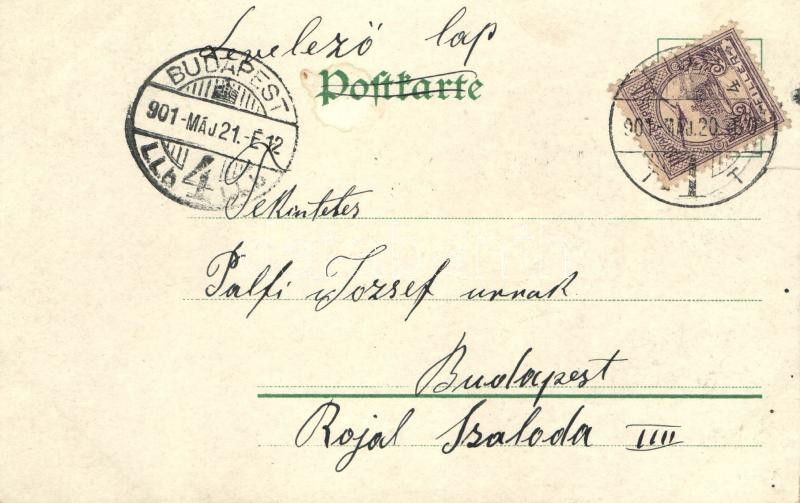 Levelező lap
Postkarte
BUDAPEST
901-MÁJ 21.-É 12
4
901-MÁJ. 20.
1
4
FILLÉR
Tekintetes
Pálfi József urnak
Budapest
Rojal Szaloda IIII